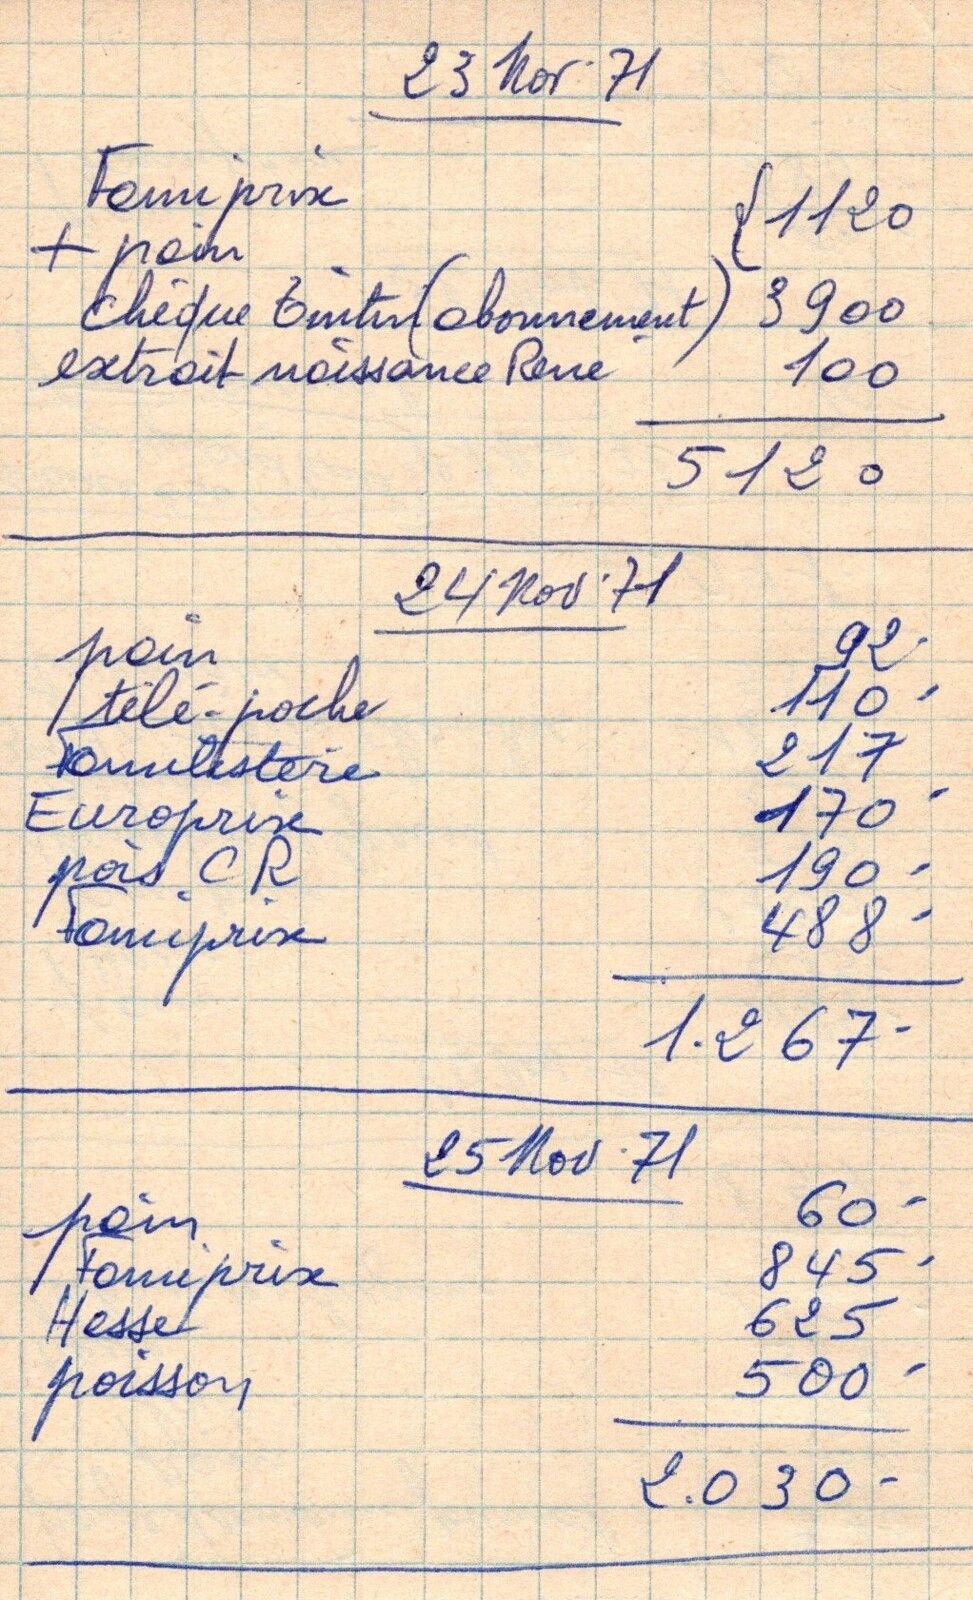 23 Nov. 71
Famiprix {1120
+ pain
chèque Tintin (abonnement) 3900
extrait naissance René 100
5120
24 Nov. 71
pain 92-
télé-poche 110-
Familistère 217
Europrix 170-
pois CR 190-
Famiprix 488-
1.267-
25 Nov. 71
pain 60-
Famiprix 845-
Hesse 625
poisson 500-
2.030-